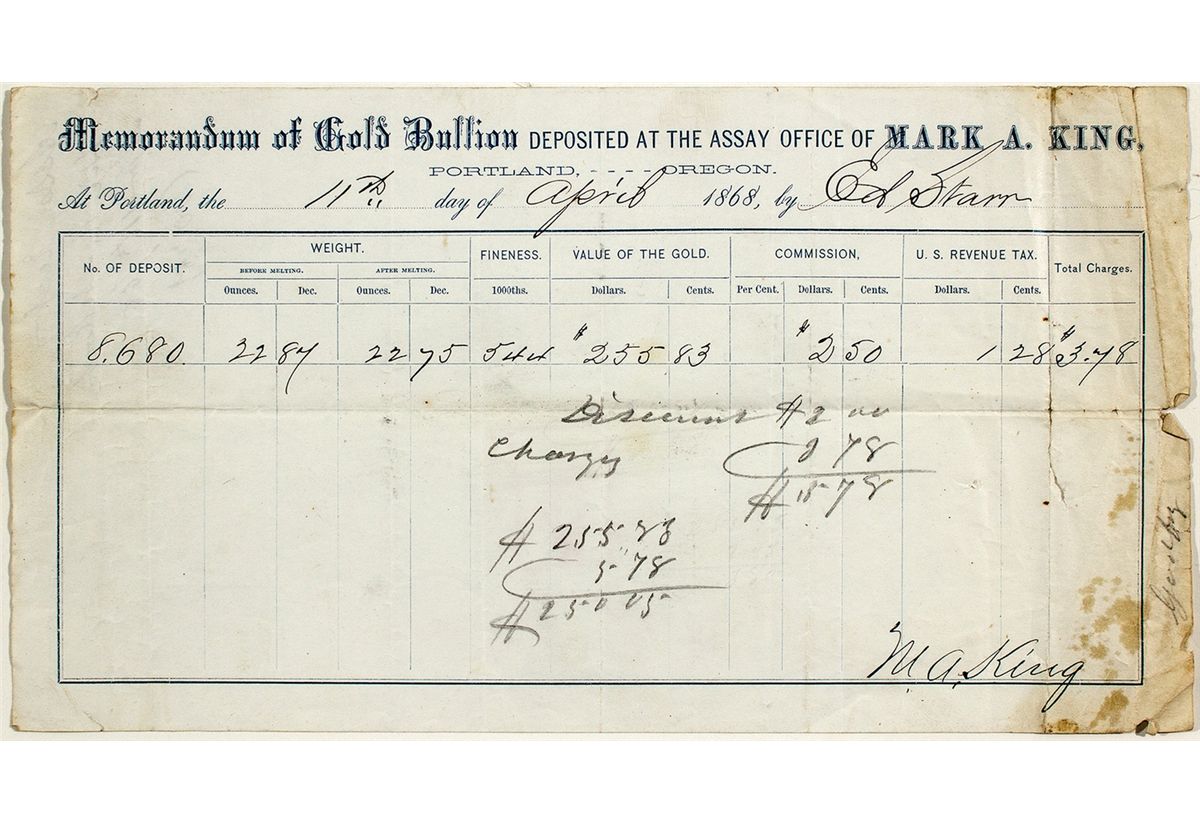 Memorandum of Gold Bullion DEPOSITED AT THE ASSAY OFFICE OF MARK A. KING,
PORTLAND, - - - - OREGON.
At Portland, the 11th day of April 1868, by Ed Starr
No. OF DEPOSIT. WEIGHT. FINENESS. VALUE OF THE GOLD. COMMISSION, U. S. REVENUE TAX. Total Charges.
BEFORE MELTING. AFTER MELTING.
Ounces. Dec. Ounces. Dec. 1000ths. Dollars. Cents. Per Cent. Dollars. Cents. Dollars. Cents.
8.680. 22 87 22 75 544 $255 83 $2 50 1 28 $3.78
Discount $2 00
Charges 3 78
$ 5 78
$ 255 83
5 78
$ 250 05
M. A. King